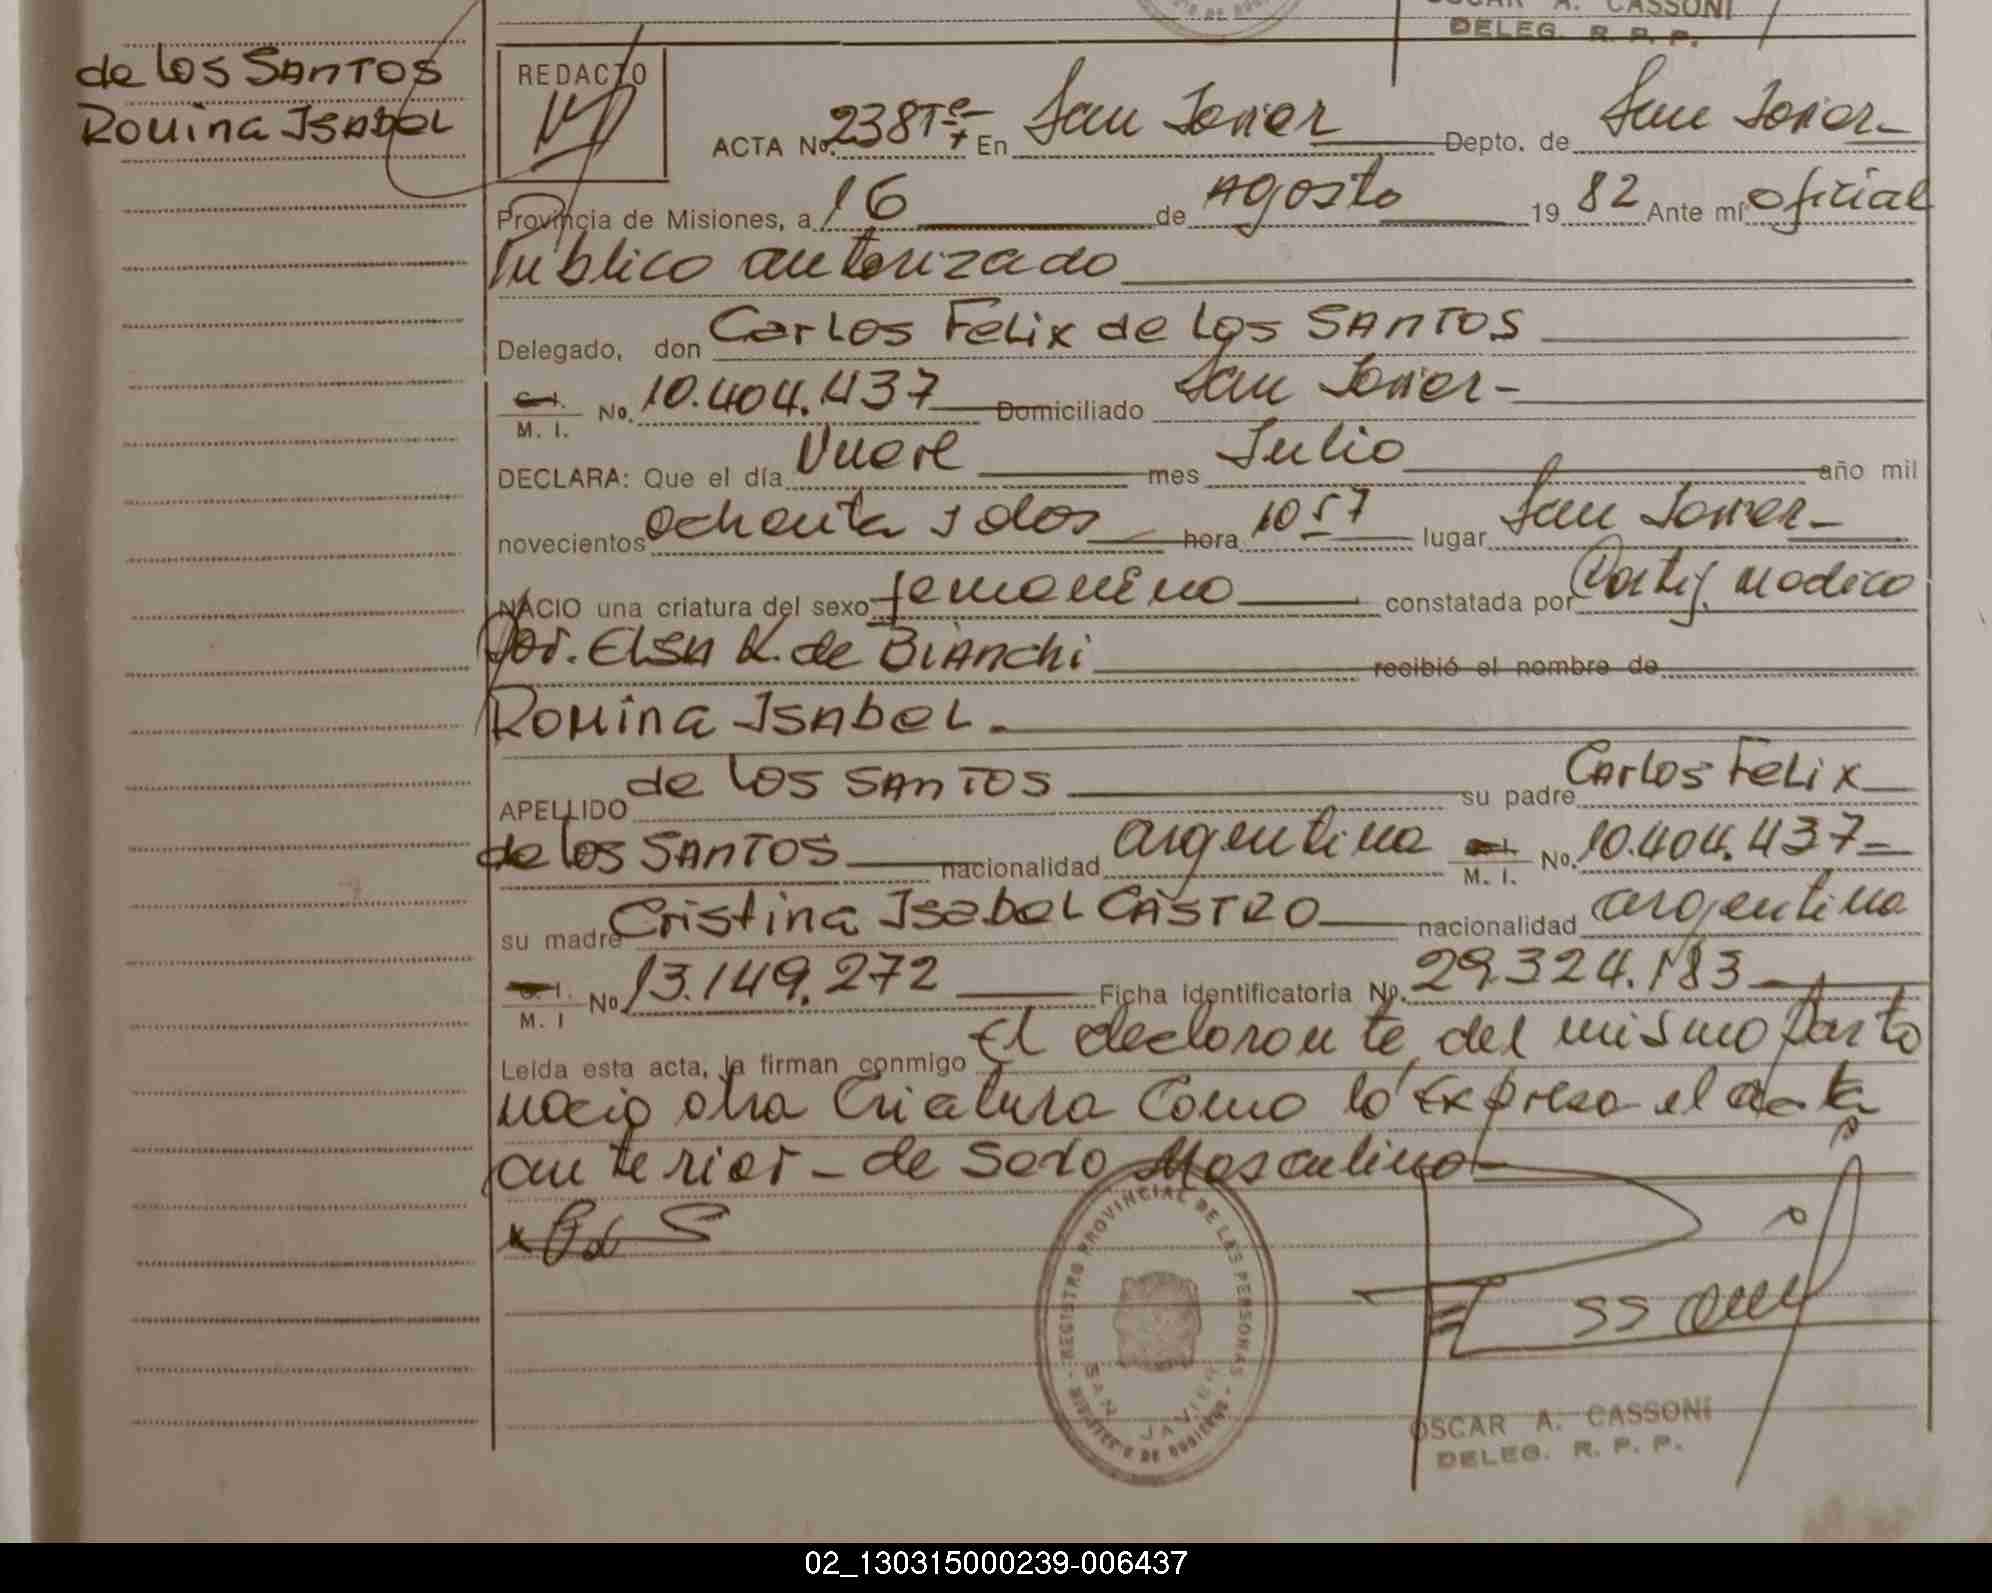 OSCAR A. CASSONI
DELEG. R. P. P.
de los SANTOS
Romina ISABEL
REDACTO
ACTA No. 238 Tº En San Javier Depto. de San Javier
Provincia de Misiones, a 16 de Agosto 19 82 Ante mí oficial
Público autorizado
Delegado, don Carlos Felix de los SANTOS
C. I.
M. I. No. 10.404.437 Domiciliado San Javier
DECLARA: Que el día Nueve mes Julio año mil
novecientos ochenta y dos hora 10 57 lugar San Javier
NACIO una criatura del sexo femenino constatada por Certif. Medico
Dor. ELSA K. de BIANCHi recibió el nombre de
Romina ISABEL
APELLIDO de los SANTOS su padre Carlos Felix
de los SANTOS nacionalidad argentina M. I. No. 10.404.437
su madre Cristina Isabel CASTRO nacionalidad argentina
C. I.
M. I No 13.149.272 Ficha identificatoria No. 29.324.183
Leída esta acta, la firman conmigo El declarante, del mismo parto
nacio otra Criatura Como lo Expresa el acta
anterior - de Sexo Masculino
REGISTRO PROVINCIAL DE LAS PERSONAS
SAN JAVIER
MINISTERIO DE GOBIERNO
OSCAR A. CASSONI
DELEG. R. P. P.
02_130315000239-006437